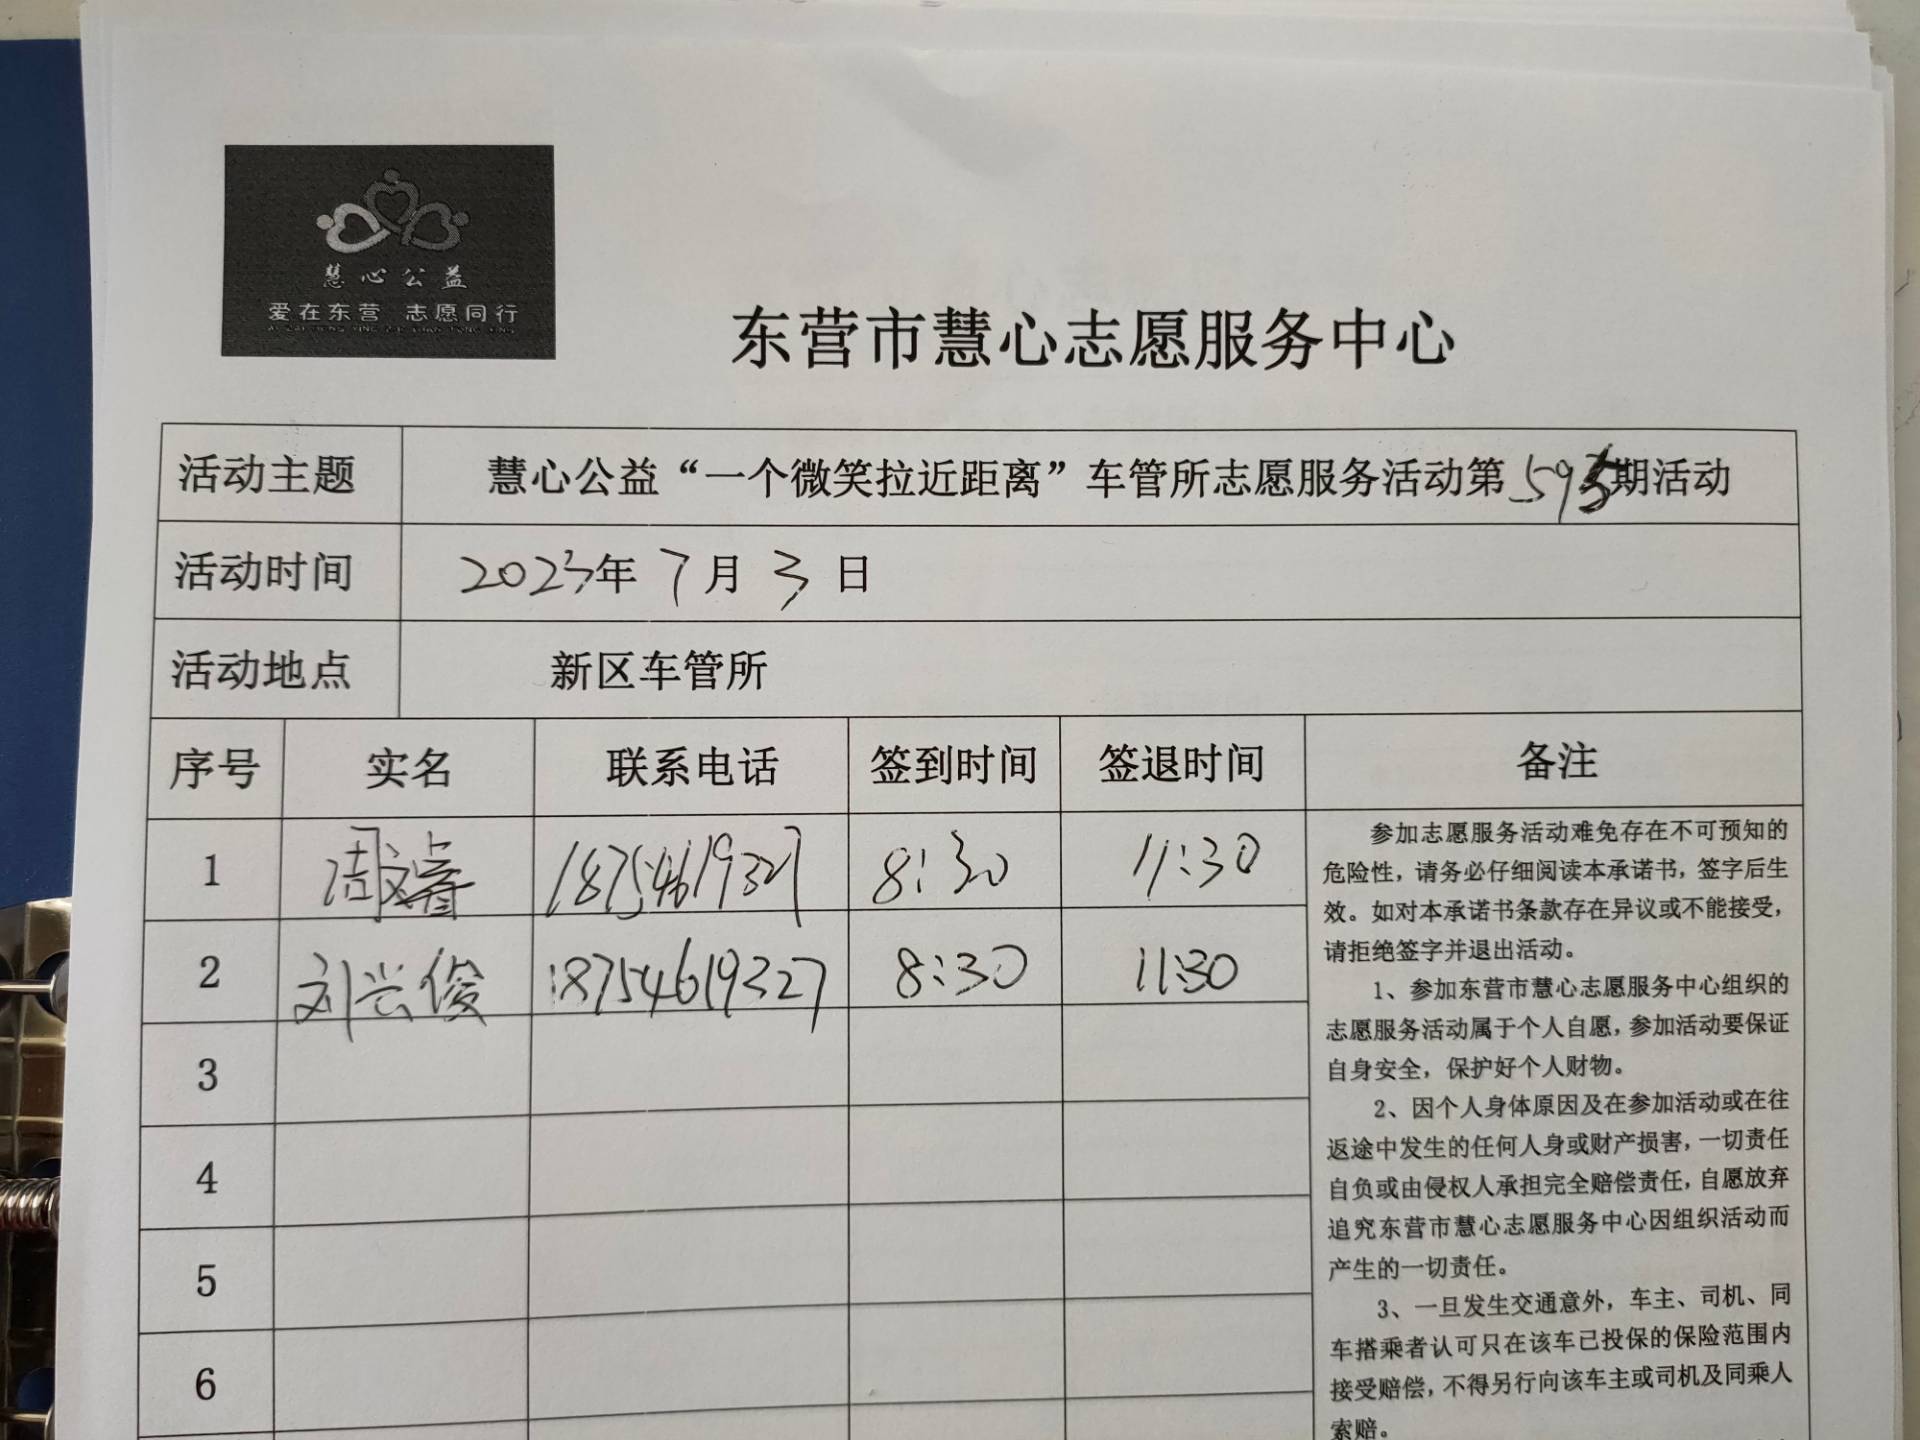 慧心公益
爱在东营 志愿同行
东营市慧心志愿服务中心
活动主题 慧心公益“一个微笑拉近距离”车管所志愿服务活动第595期活动
活动时间 2023年 7月 3日
活动地点 新区车管所
序号 实名 联系电话 签到时间 签退时间 备注
1 周文睿 18754619327 8:30 11:30
2 刘兴俊 18754619327 8:30 11:30
3
4
5
6
参加志愿服务活动难免存在不可预知的
危险性，请务必仔细阅读本承诺书，签字后生
效。如对本承诺书条款存在异议或不能接受，
请拒绝签字并退出活动。
1、参加东营市慧心志愿服务中心组织的
志愿服务活动属于个人自愿，参加活动要保证
自身安全，保护好个人财物。
2、因个人身体原因及在参加活动或在往
返途中发生的任何人身或财产损害，一切责任
自负或由侵权人承担完全赔偿责任，自愿放弃
追究东营市慧心志愿服务中心因组织活动而
产生的一切责任。
3、一旦发生交通意外，车主、司机、同
车搭乘者认可只在该车已投保的保险范围内
接受赔偿，不得另行向该车主或司机及同乘人
索赔。